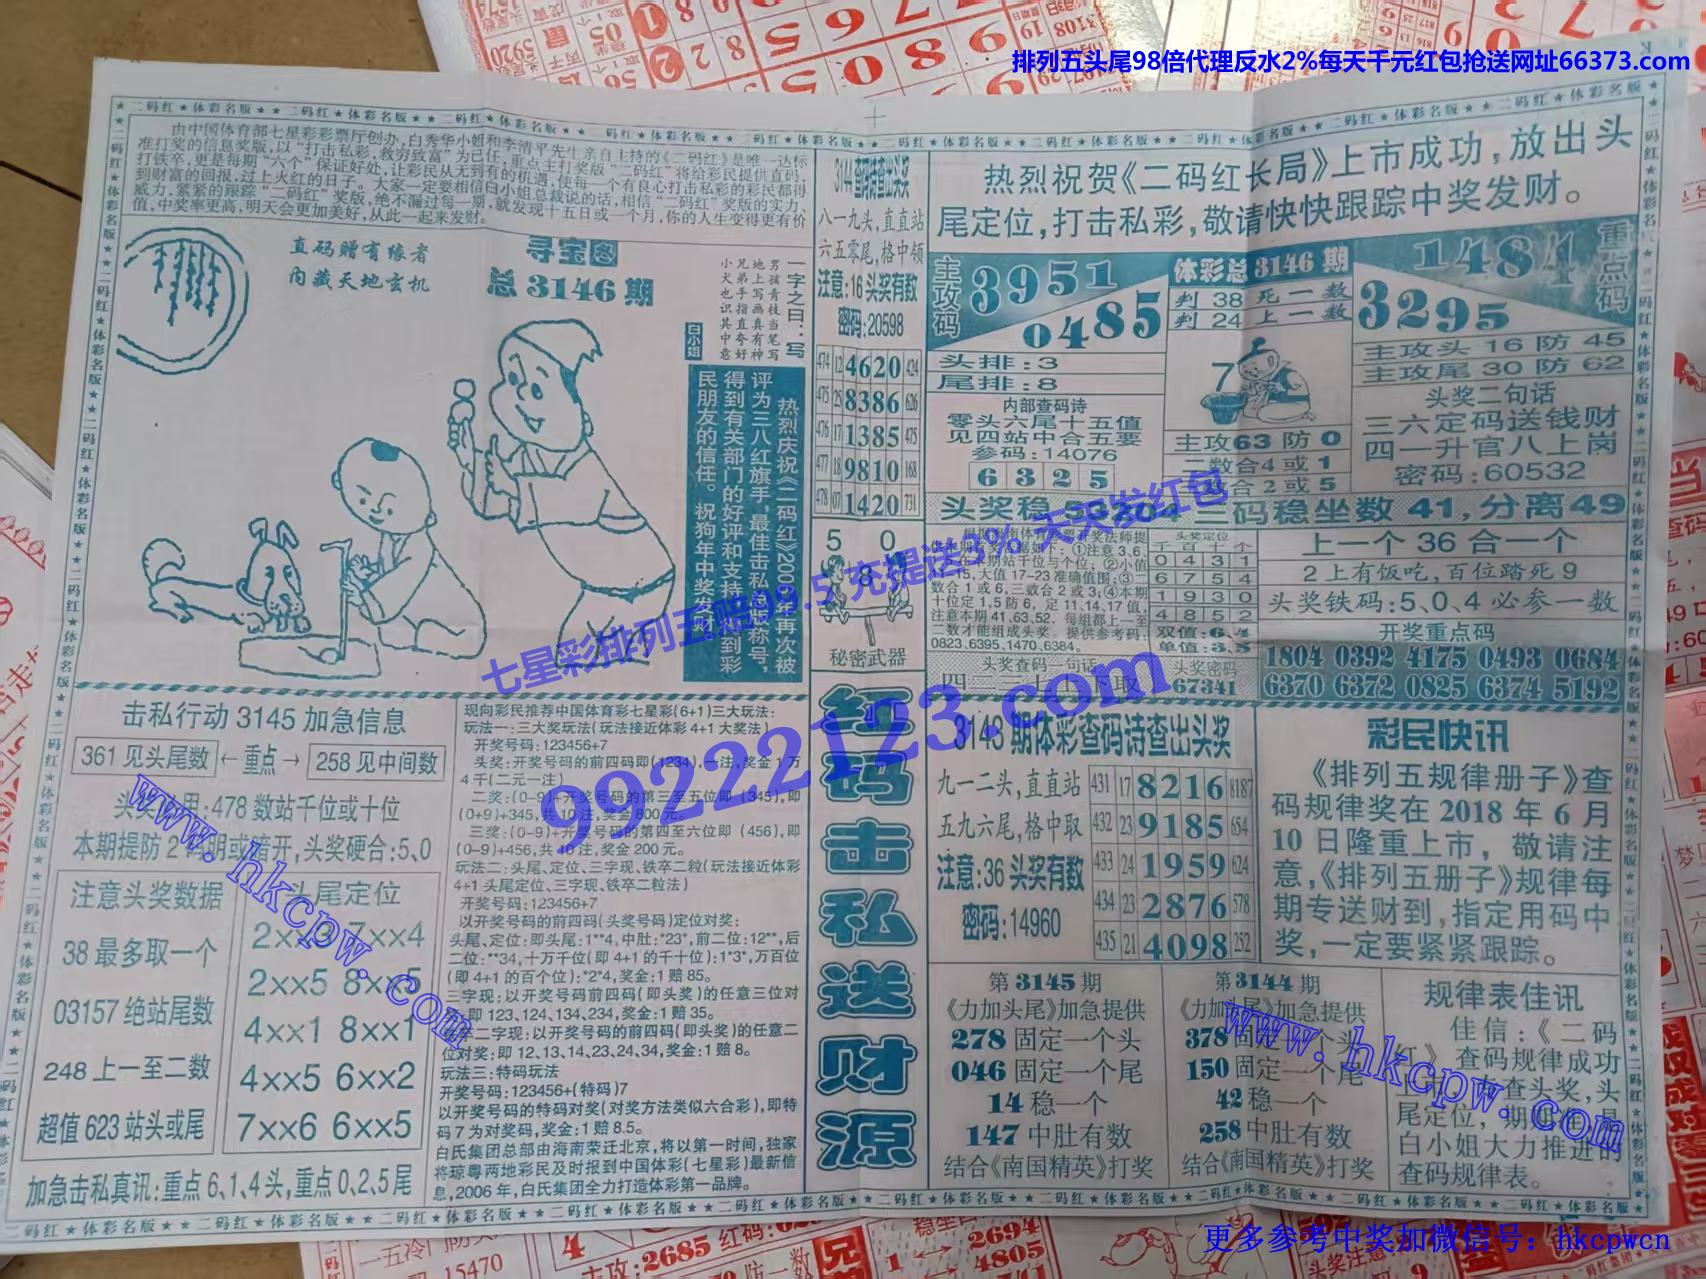 排列五头尾98倍代理反水2%每天千元红包抢送网址66373.com
由中国体育部七星彩彩票厅创办,白秀华小姐和李清平先生亲自主持的《二码红》是唯一达标
准打奖的信息奖版,以“打击私彩,救穷致富”为己任,重点主打奖版“二码红”将给彩民提供直码,
打铁卒,更是每期“六个”保证好处,让彩民从无到有的机遇,使每一个有良心打击私彩的彩民都得
到财富的回报,过上火红的日子。大家一定要相信白小姐总裁说的话,相信“二码红”奖版的实力,
威力,紧紧的跟踪“二码红”奖版,绝不漏过每一期,就发现十五日或一个月,你的人生变得更有价
值,中奖率更高,明天会更加美好,从此一起来发财。
直码赠有缘者
内藏天地玄机
寻宝图
总 3146 期
一字之曰:写
男孩青枝当笔写
地上写画真有神
兄弟手指直夸好
小犬也识其中意
白小姐
热烈庆祝《二码红》2006年再次被
评为三八红旗手,最佳击私总版称号,
得到有关部门的好评和支持,得到彩
民朋友的信任。祝狗年中奖发财
3144查码诗查出头奖
八一九头,直直站
六五零尾,格中领
注意:16头奖有数
密码:20598
474 12 4620 424
475 25 8386 626
476 17 1385 475
477 18 9810 168
478 07 1420 731
5 0
8
秘密武器
红码击私送财源
热烈祝贺《二码红长局》上市成功,放出头
尾定位,打击私彩,敬请快快跟踪中奖发财。
主攻码
3951
0485
体彩总3146期
判 38 死一数
判 24 上一数
1484
3295
重点码
头排:3
尾排:8
内部查码诗
零头六尾十五值
见四站中合五要
参码:14076
6 3 2 5
7
主攻63防0
二数合4或1
合2或5
主攻头 16 防 45
主攻尾 30 防 62
头奖二句话
三六定码送钱财
四一升官八上岗
密码:60532
头奖稳
二码稳坐数 41,分离49
头奖定位
千百十个
0 4 3 1
6 7 5 4
1 9 3 0
4 8 5 2
双值:6,4
单值:3,5
0823,6395,1470,6384。
头奖查码一句话
头奖密码
67341
上一个 36 合一个
2上有饭吃,百位踏死9
头奖铁码:5、0、4 必参一数
开奖重点码
1804 0392 4175 0493 0684
6370 6372 0825 6374 5192
击私行动 3145 加急信息
361 见头尾数 ←重点→ 258 见中间数
用:478 数站千位或十位
本期提防 2 码明或暗开,头奖硬合:5、0
注意头奖数据
38 最多取一个
03157 绝站尾数
248 上一至二数
超值 623 站头或尾
头尾定位
2xx3 7xx4
2xx5 8xx5
4xx1 8xx1
4xx5 6xx2
7xx6 6xx5
加急击私真讯:重点 6、1、4 头,重点 0、2、5 尾
现向彩民推荐中国体育彩七星彩(6+1)三大玩法:
玩法一:三大奖玩法(玩法接近体彩 4+1 大奖法)
开奖号码:123456+7
头奖:开奖号码的前四码即(1234),一注,奖金 1 万
4 千(二元一注)
二奖:(0-9)+开奖号码的第三至五位即(345),即
(0+9)+345,共 10 注,奖金 800 元。
三奖:(0-9)+开奖号码的第四至六位即(456),即
(0-9)+456,共 10 注,奖金 200 元。
玩法二:头尾、定位、三字现、铁卒二粒(玩法接近体彩
4+1 头尾定位、三字现、铁卒二粒法)
开奖号码:123456+7
以开奖号码的前四码(头奖号码)定位对奖:
头尾、定位:即头尾:1**4,中肚:*23*,前二位:12**,后
二位:**34,十万千位(即 4+1 的千十位):1*3*,万百位
(即 4+1 的百个位):*2*4,奖金:1 赔 85。
三字现:以开奖号码前四码(即头奖)的任意三位对
即 123,124,134,234,奖金:1 赔 35。
卒二字现:以开奖号码的前四码(即头奖)的任意二
位对奖:即 12,13,14,23,24,34,奖金:1 赔 8。
玩法三:特码玩法
开奖号码:123456+(特码)7
以开奖号码的特码对奖(对奖方法类似六合彩),即特
码 7 为对奖码,奖金:1 赔 8.5。
白氏集团总部由海南荣迁北京,将以第一时间,独家
将琼粤两地彩民及时报到中国体彩(七星彩)最新信
息,2006 年,白氏集团全力打造体彩第一品牌。
3143 期体彩查码诗查出头奖
九一二头,直直站
五九六尾,格中取
注意:36 头奖有数
密码:14960
431 17 8216 8187
432 23 9185 654
433 24 1959 624
434 23 2876 578
435 21 4098 252
第 3145 期
《力加头尾》加急提供
278 固定一个头
046 固定一个尾
14 稳一个
147 中肚有数
结合《南国精英》打奖
第 3144 期
《力加头尾》加急提供
378 固定一个头
150 固定一个尾
42 稳一个
258 中肚有数
结合《南国精英》打奖
彩民快讯
《排列五规律册子》查
码规律奖在 2018 年 6 月
10 日隆重上市,敬请注
意,《排列五册子》规律每
期专送财到,指定用码中
奖,一定要紧紧跟踪。
规律表佳讯
佳信:《二码
红》查码规律成功
查头奖,头
尾定位,期期
白小姐大力推进的
查码规律表。
七星彩排列五赔99.5 充提送3% 天天发红包
99222123.com
www.hkcpw.com
www.hkcpw.com
更多参考中奖加微信号: hkcpwcn